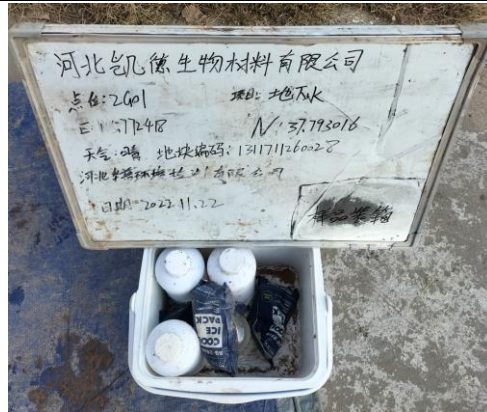 河北凯德生物材料有限公司
点位:2G01 项目:地下水
N:37.793016
天气:晴 地块编码:1311711260028
河北 环境 有限公司
日期:2022.11.22
样品装箱
ICE
PACK